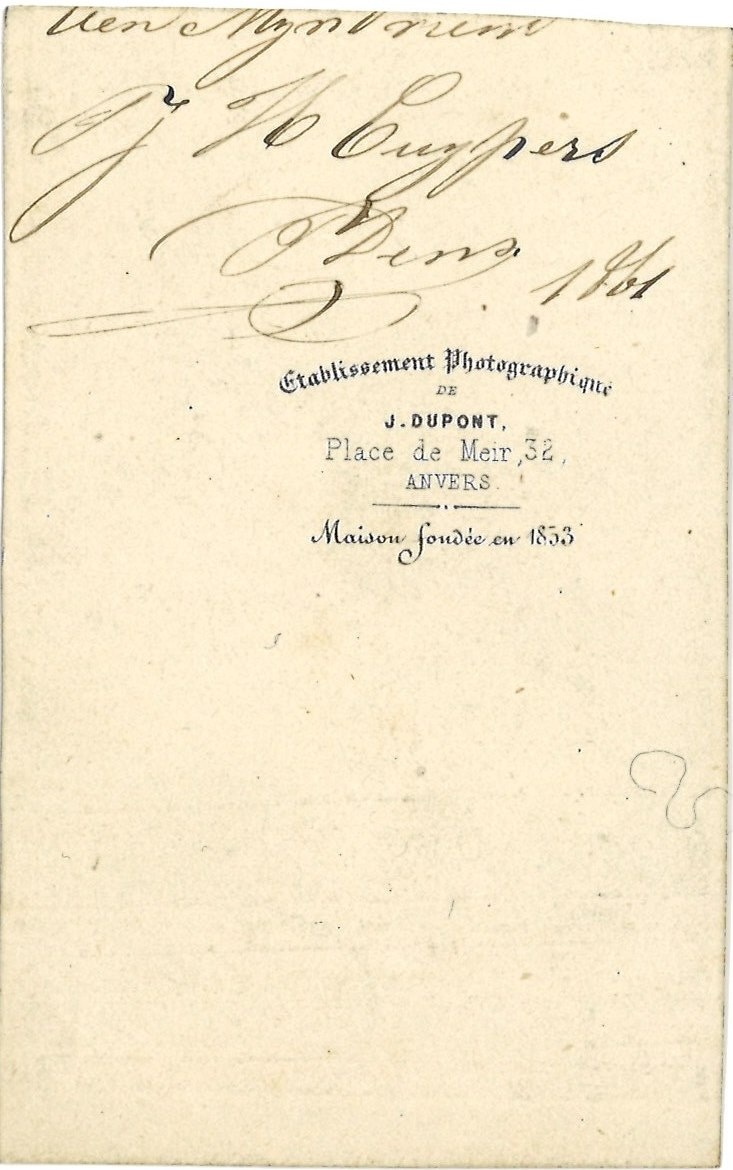 J H Cuypers
1861
Etablissement Photographique
DE
J. DUPONT,
Place de Meir, 32,
ANVERS.
Maison fondée en 1853